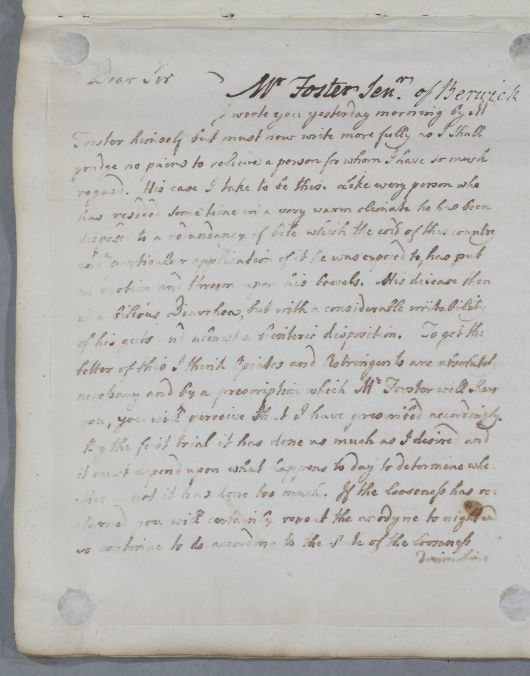 Dear Sir
Mr Foster Senr. of Berwick
I wrote you yesterday morning by Mr
Forster himself but must now write more fully as I shall
grudge no pains to relieve a person for whom I have so much
regard. His case I take to be this. Like every person who
has resided some time in a very warm climate he has been
disposed to a redundancy of bile which the cold of this country
and particular application of it he was exposed to, has put
in motion and thrown upon his bowels. His disease then
is a bilious Diarrhea, but with a considerable irritability
of his guts and almost a lienteric disposition. To get the
better of this I think Opiates and Astringents are absolutely
necessary and by a prescription which Mr Forster will show
you, you will perceive that I have prescribed accordingly.
By the first trial it has done as much as I desired and
it must depend upon what happens to day to determine whe-
ther or not it has done too much. If the Looseness has re-
turned you will certainly repeat the anodyne to night and
so continue to do according to the state of the Looseness